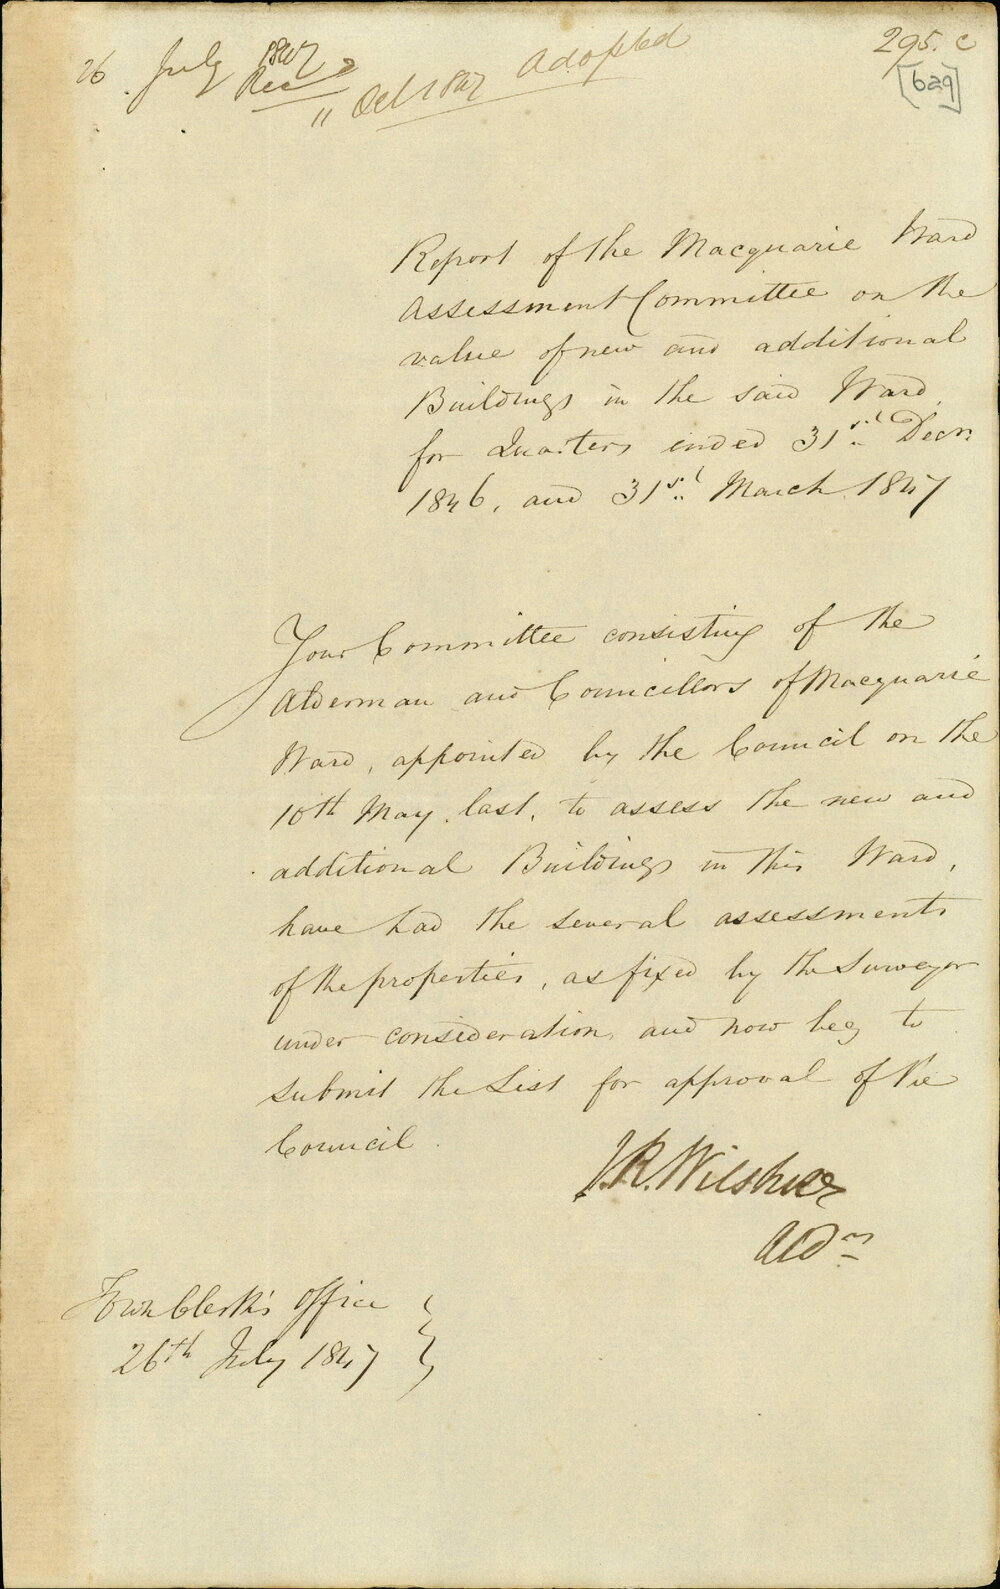 26 July 1847
Rec
" Oct 1847 Adopted
295. c
[629]
Report of the Macquarie Ward
Assessment Committee on the
value of new and additional
Buildings in the said Ward,
for Quarters ended 31st Decr.
1846, and 31st March 1847
Your Committee consisting of the
Alderman and Councillors of Macquarie
Ward, appointed by the Council on the
10th May last, to assess the new and
additional Buildings in this Ward,
have had the several assessments
of the properties, as fixed by the Surveyor
under consideration, and now beg to
submit the List for approval of the
Council.
J. R. Wilshire
Aldn
Town Clerk's Office
26th July 1847